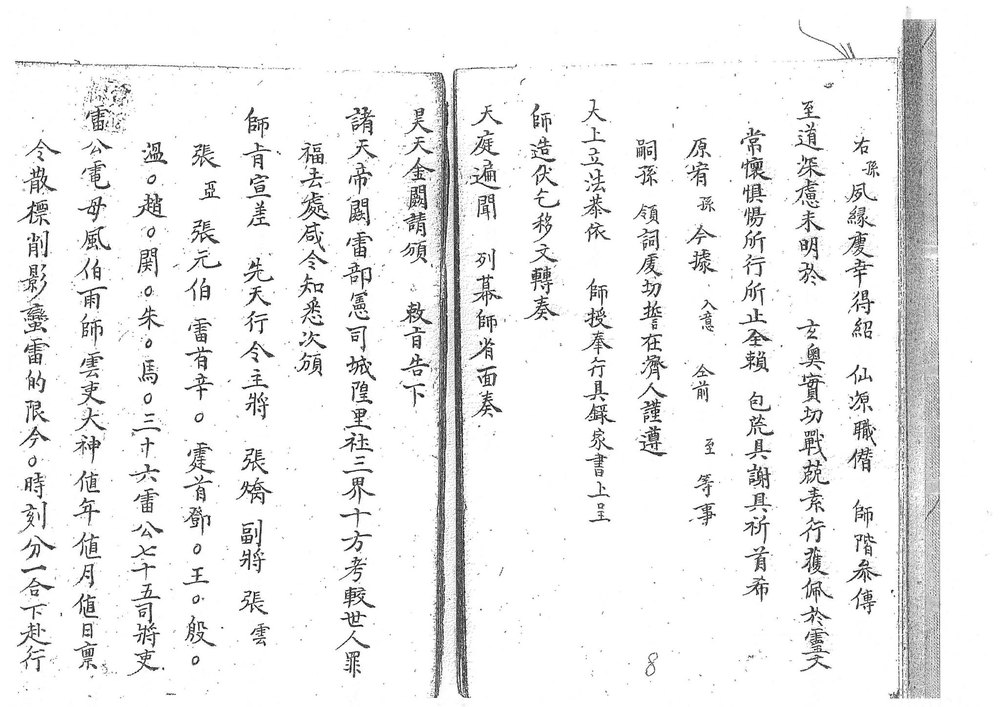 右孫夙緣慶幸得紹　仙源職僭　師階叅傳
至道深慮未明於　玄奧實切戰兢素行獲佩於靈文
常懷惧惕所行所止全賴　包荒具謝具祈首希
原宥孫今據　入意　仝前　至　等事
嗣孫　領詞虔切誓在濟人謹遵
大上立法恭依　師授奉行具錄家書上呈
師造伏乞移文轉奏
天庭遍聞　列幕師省面奏
8
昊天金闕請頒　敕旨告下
諸天帝闕雷部憲司城隍里社三界十方考較世人罪
福去處咸令知悉次頒
師旨宣差　先天行令主將　張燆　副將　張雲
張亞　張元伯　雷首辛○　霆首鄧○王○殷○
溫○趙○関○朱○馬○三十六雷公七十五司將吏
雷公電母風伯雨師雲吏大神值年值月值日稟
令散標削影蠻雷的限今○時刻分一合下赴行